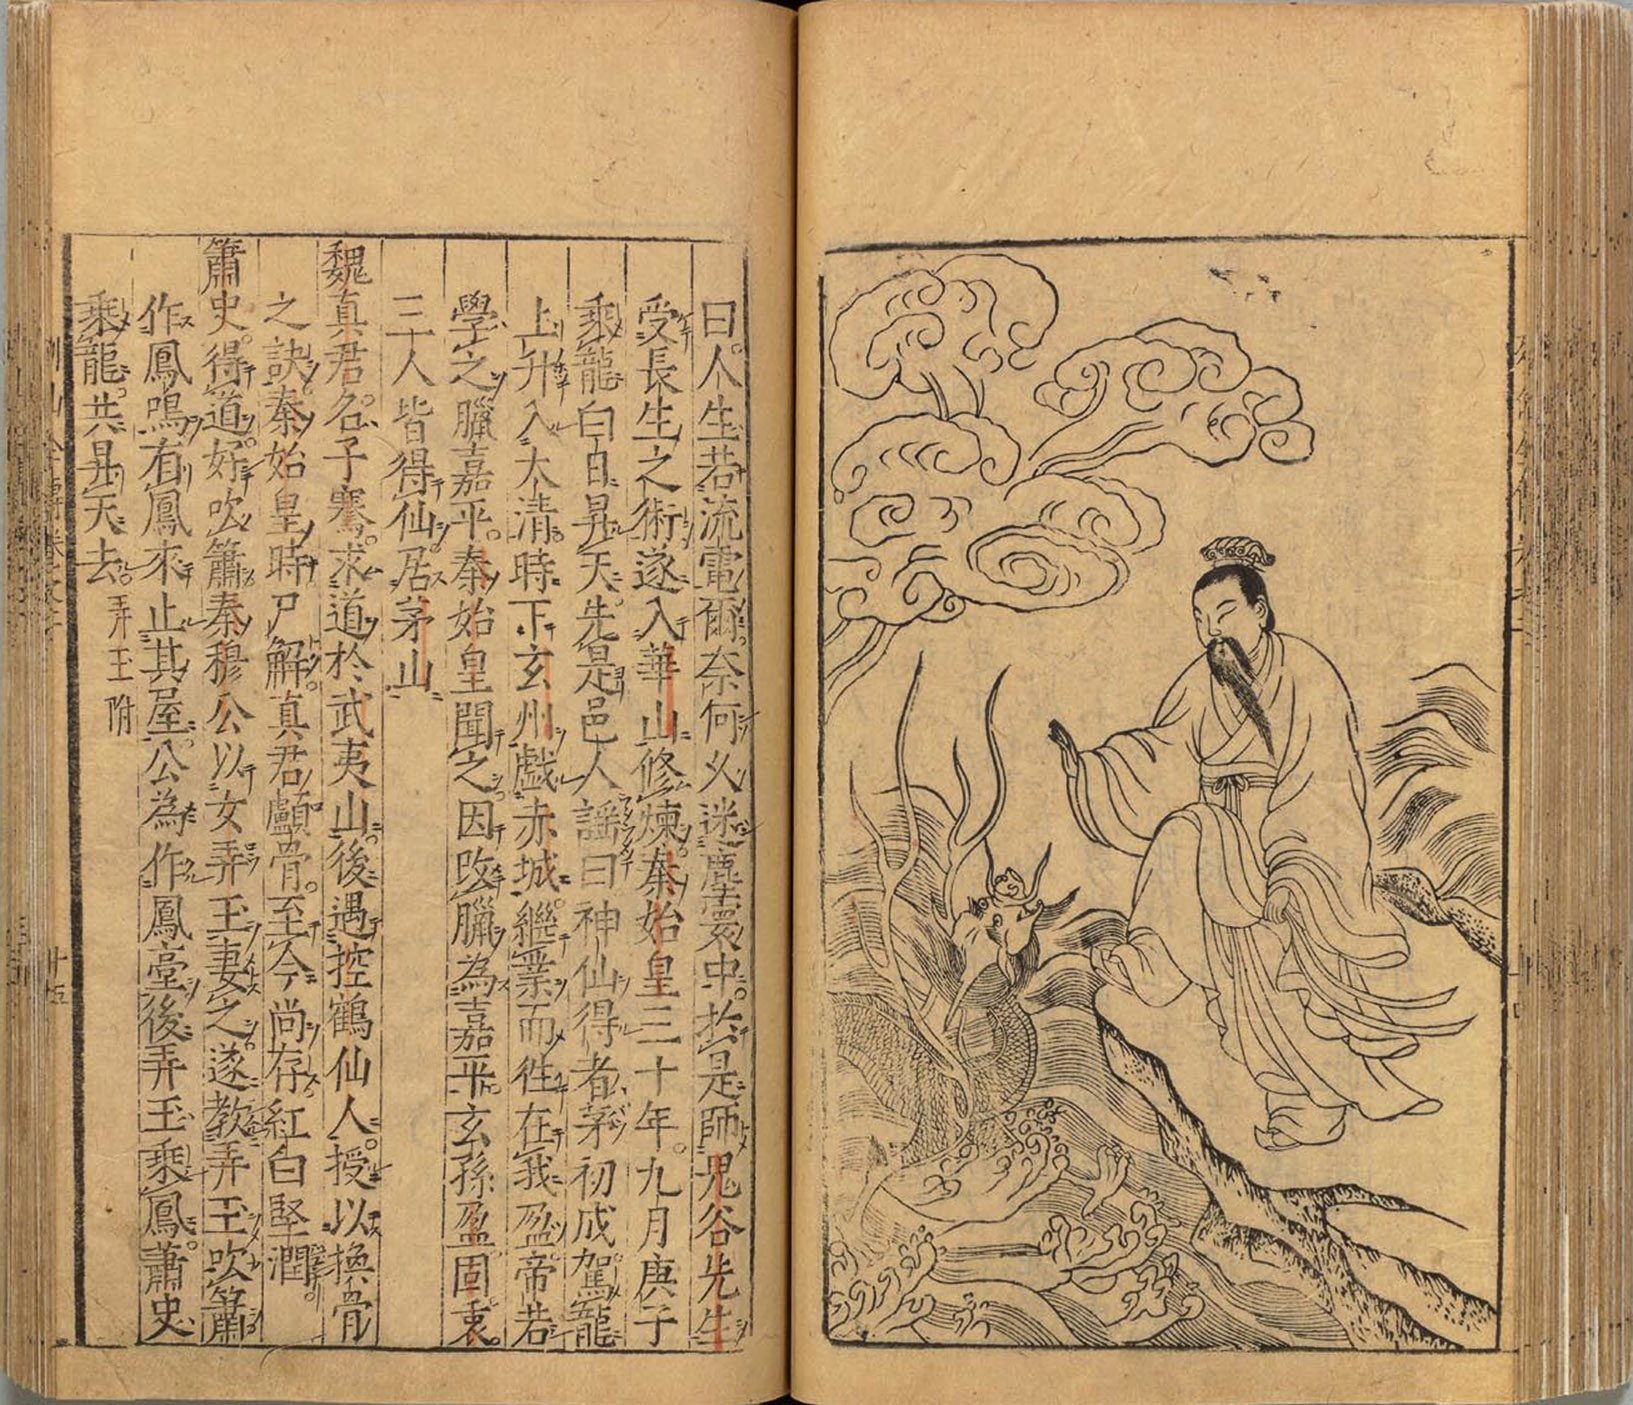 曰。人生若流電爾。奈何久迷塵寰中。於是師鬼谷先生
受長生之術。遂入華山修煉。秦始皇三十年。九月庚子
乘龍白日昇天。先是邑人謡曰。神仙得者茅初成。駕龍
上升入太清。時下玄州戯赤城。繼業而徃在我盈。帝若
學之臘嘉平。秦始皇聞之。因改臘為嘉平。玄孫盈固衷。
三人皆得仙。居茅山
魏真君名子騫。求道於武夷山。後遇控鶴仙人。授以換骨
之訣。秦始皇時尸解。真君顱骨。至今尚存。紅白堅潤。
簫史。得道。好吹簫。秦穆公以女弄玉妻之。遂教弄玉吹簫。
作鳳鳴。有鳳來止其屋。公為作鳳臺。後弄玉乘鳳。蕭史
乘龍。共昇天去。弄玉附
十五